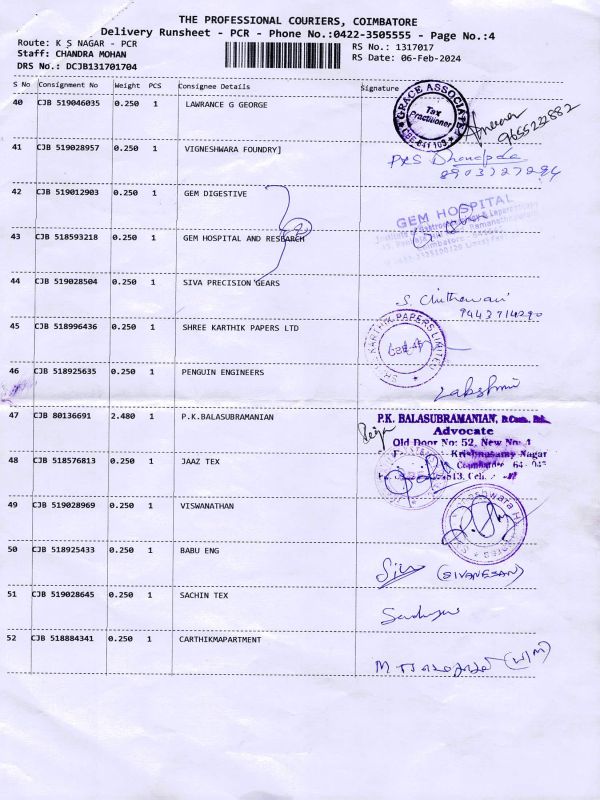 THE PROFESSIONAL COURIERS, COIMBATORE
Delivery Runsheet - PCR - Phone No.:0422-3505555 - Page No.:4
Route: K S NAGAR - PCR
RS No.: 1317017
Staff: CHANDRA MOHAN
RS Date: 06-Feb-2024
DRS No.: DCJB131701704
S No Consignment No Weight PCS Consignee Details Signature
40 CJB 519046035 0.250 1 LAWRANCE G GEORGE
GRACE ASSOCIATES
Tax
Practitioner
9655222882
41 CJB 519028957 0.250 1 VIGNESHWARA FOUNDRY]
8903727294
42 CJB 519012903 0.250 1 GEM DIGESTIVE
GEM HOSPITAL
43 CJB 518593218 0.250 1 GEM HOSPITAL AND RESEARCH
44 CJB 519028504 0.250 1 SIVA PRECISION GEARS
S.
45 CJB 518996436 0.250 1 SHREE KARTHIK PAPERS LTD
KARTHIK PAPERS LIMITED
46 CJB 518925635 0.250 1 PENGUIN ENGINEERS
Lakshmi
47 CJB 80136691 2.480 1 P.K.BALASUBRAMANIAN
P.K. BALASUBRAMANIAN,
Advocate
Old Door No: 52, New No: 4
Krishnasamy Nagar
Coimbatore
48 CJB 518576813 0.250 1 JAAZ TEX
49 CJB 519028969 0.250 1 VISWANATHAN
50 CJB 518925433 0.250 1 BABU ENG
(SIVANESAN)
51 CJB 519028645 0.250 1 SACHIN TEX
52 CJB 518884341 0.250 1 CARTHIKMAPARTMENT